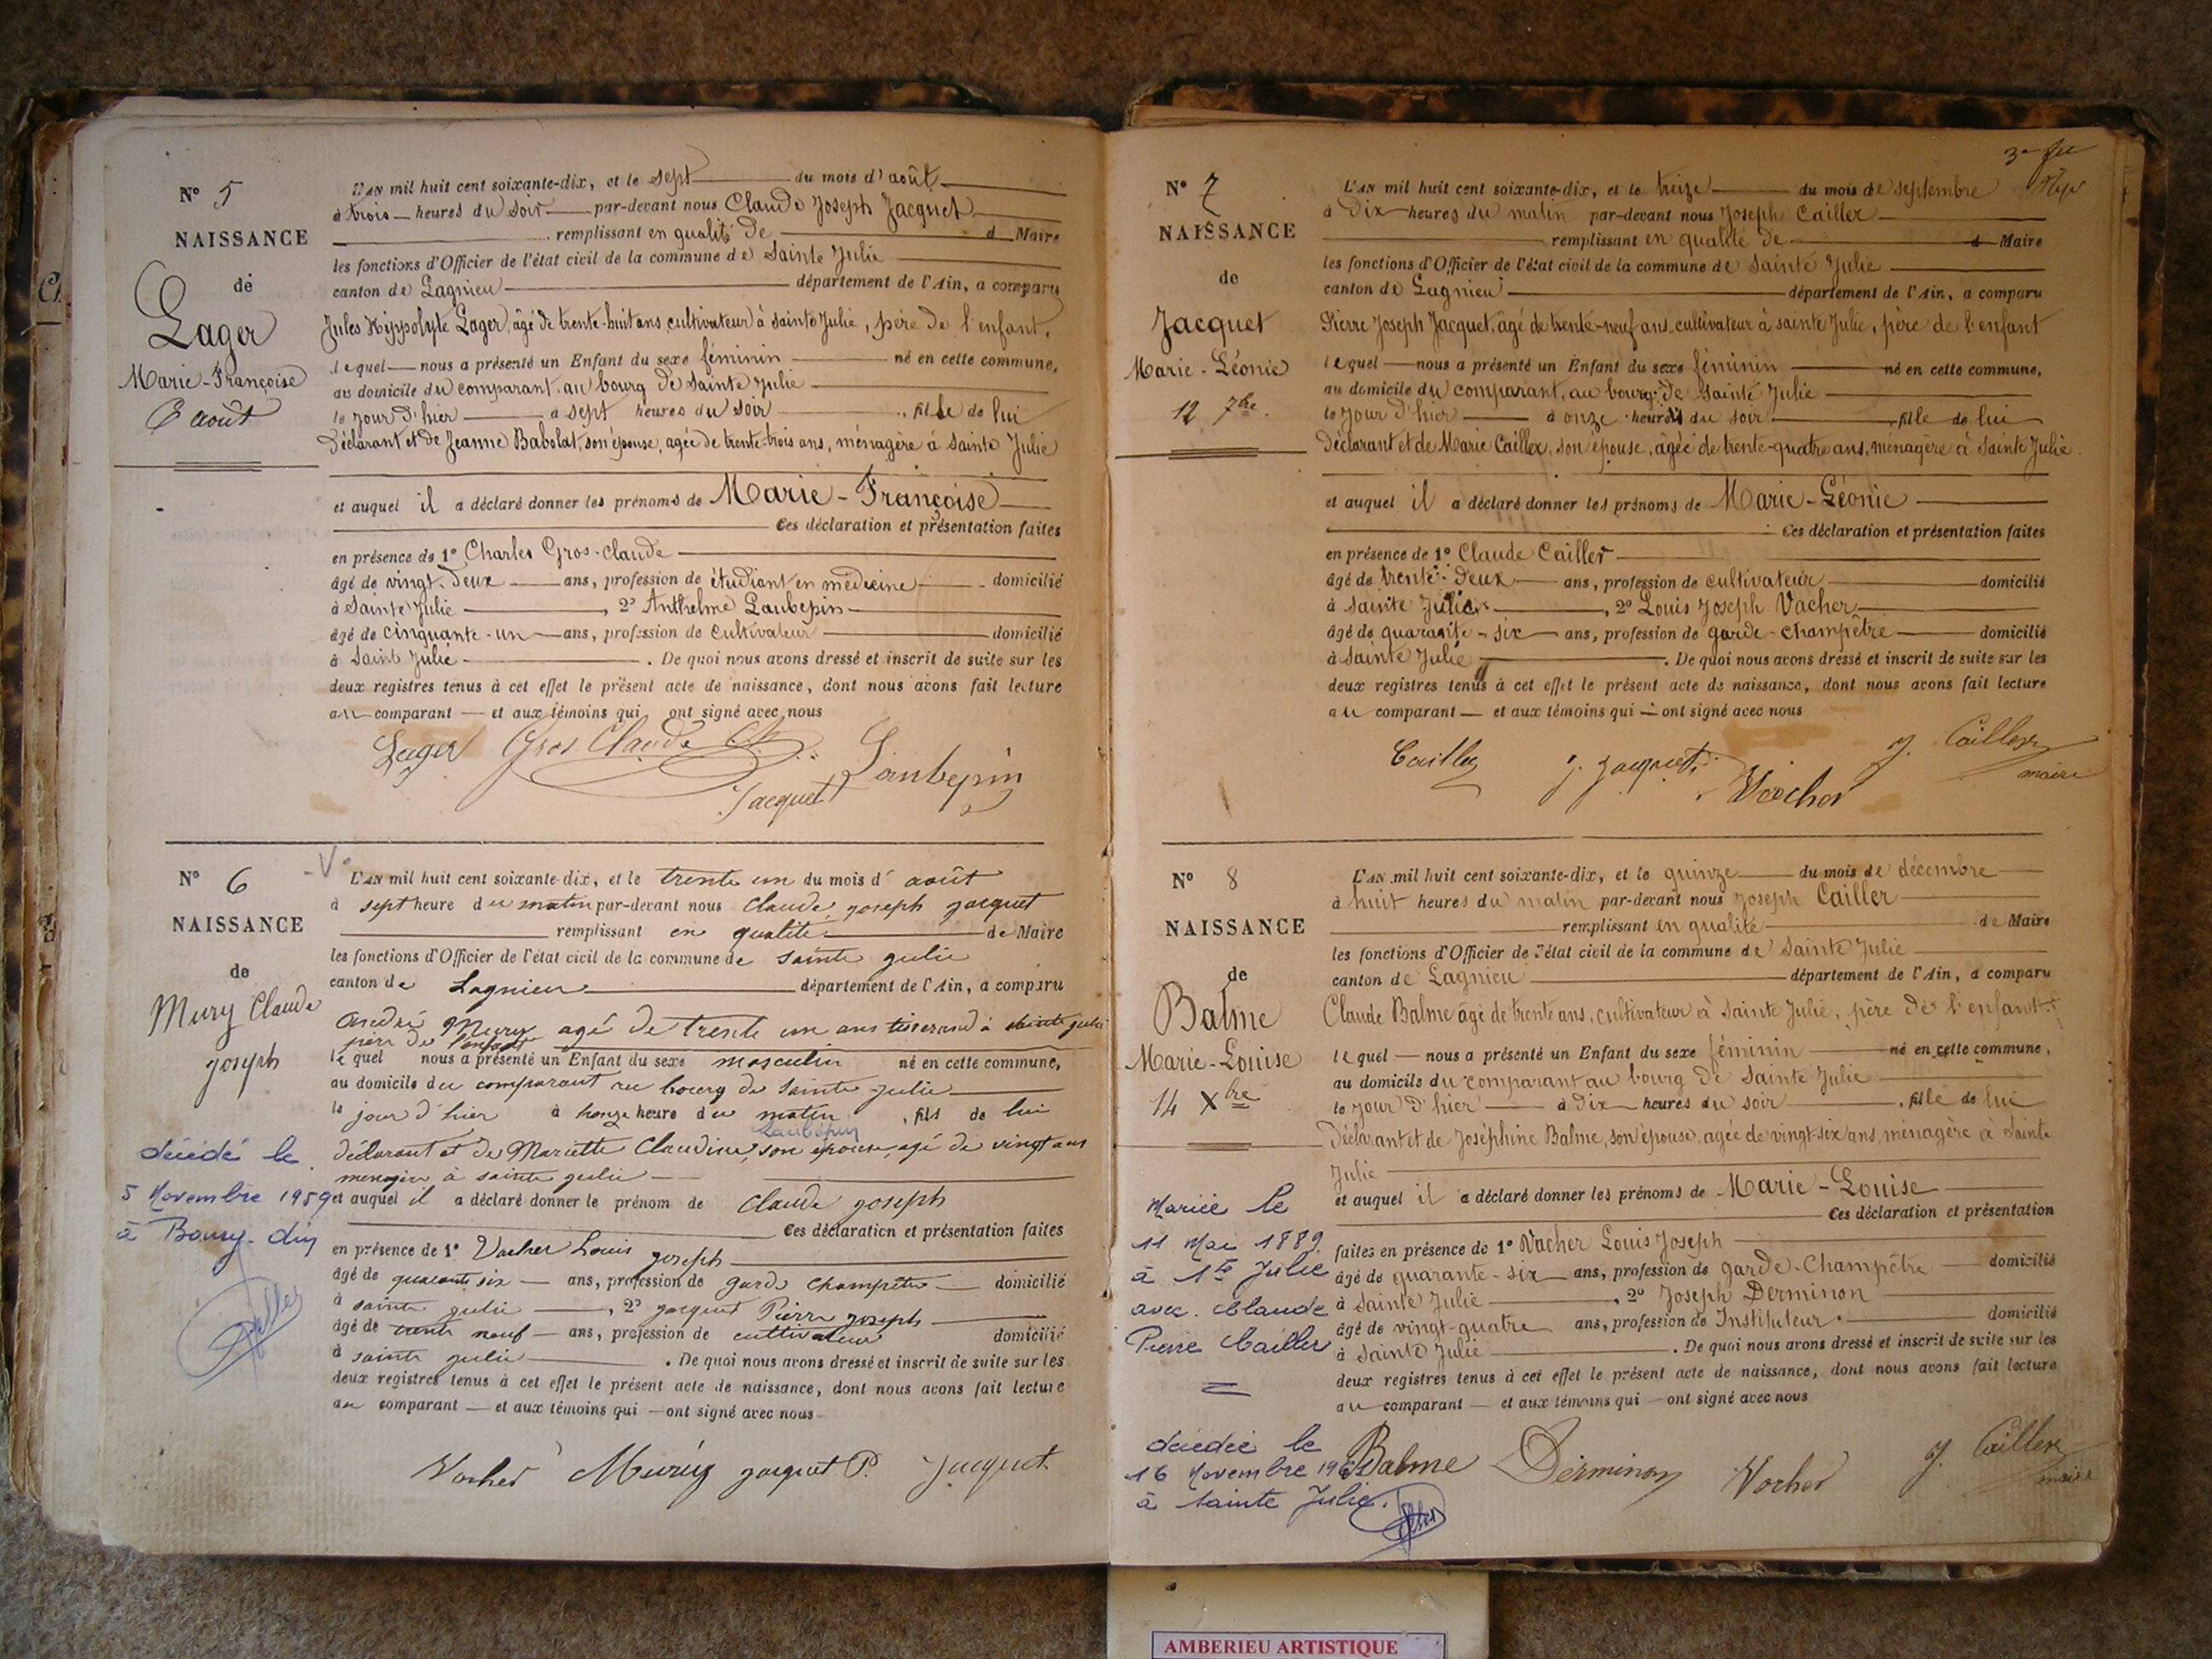 N° 5
NAISSANCE
de
Lager
Marie-Françoise
6 août
L'AN mil huit cent soixante-dix, et le sept du mois d'août
à trois heures du soir par-devant nous Claude Joseph Jacquet
remplissant en qualité de d Maire
les fonctions d'Officier de l'état civil de la commune de Sainte Julie
canton de Lagnieu département de l'Ain, a comparu
Jules Hippolyte Lager, âgé de trente-huit ans, cultivateur à sainte Julie, père de l'enfant,
lequel nous a présenté un Enfant du sexe féminin né en cette commune,
au domicile du comparant au bourg de Sainte Julie
le jour d'hier à sept heures du soir, fille de lui
Déclarant et de Jeanne Babolat, son épouse, agée de trente-trois ans, ménagère à Sainte Julie
et auquel il a déclaré donner les prénoms de Marie-Françoise
Ces déclaration et présentation faites
en présence de 1° Charles Gros-Claude
âgé de vingt-deux ans, profession de étudiant en médecine domicilié
à Sainte Julie, 2° Anthelme Laubepin
âgé de cinquante-un ans, profession de Cultivateur domicilié
à Saint Julie. De quoi nous avons dressé et inscrit de suite sur les
deux registres tenus à cet effet le présent acte de naissance, dont nous avons fait lecture
au comparant et aux témoins qui ont signé avec nous
Lager Gros Claude Ch Laubepin
Jacquet
N° 6
NAISSANCE
de
Mury Claude
joseph
décédé le
5 Novembre 1959
à Bourg
L'AN mil huit cent soixante-dix, et le trente un du mois d'août
à sept heure du matin par-devant nous Claude joseph jacquet
remplissant en qualité de Maire
les fonctions d'Officier de l'état civil de la commune de sainte julie
canton de Lagnieu département de l'Ain, a comparu
André Mury agé de trente un ans tisserand à sainte julie
père de l'enfant
lequel nous a présenté un Enfant du sexe masculin né en cette commune,
au domicile du comparant au bourg de sainte julie
le jour d'hier à honze heure du matin, fils de lui
Laubépin
déclarant et de Mariette Claudine, son épouse, agé de vingt ans
menagère à sainte julie
et auquel il a déclaré donner le prénom de Claude joseph
Ces déclaration et présentation faites
en présence de 1° Vacher Louis joseph
âgé de quarante six ans, profession de garde champêtre domicilié
à sainte julie, 2° jacquet Pierre joseph
âgé de trente neuf ans, profession de cultivateur domicilié
à sainte julie. De quoi nous avons dressé et inscrit de suite sur les
deux registres tenus à cet effet le présent acte de naissance, dont nous avons fait lecture
au comparant et aux témoins qui ont signé avec nous
Vacher jacquet P. Jacquet
N° 7
NAISSANCE
de
Jacquet
Marie-Léonie
12 7bre
L'AN mil huit cent soixante-dix, et le treize du mois de septembre
à Dix heures du matin par-devant nous Joseph Cailler
remplissant en qualité de d Maire
les fonctions d'Officier de l'état civil de la commune de Sainte Julie
canton de Lagnieu département de l'Ain, a comparu
Pierre Joseph Jacquet, âgé de trente-neuf ans, cultivateur à sainte Julie, père de l'enfant
lequel nous a présenté un Enfant du sexe féminin né en cette commune,
au domicile du comparant, au bourg de Sainte Julie
le jour d'hier à onze heures du soir, fille de lui
Déclarant et de Marie Cailler, son épouse, âgée de trente-quatre ans, menagère à Sainte Julie.
et auquel il a déclaré donner les prénoms de Marie-Léonie
Ces déclaration et présentation faites
en présence de 1° Claude Cailler
âgé de trente-deux ans, profession de cultivateur domicilié
à sainte Julie, 2° Louis Joseph Vacher
âgé de quarante-six ans, profession de garde-champêtre domicilié
à Sainte Julie. De quoi nous avons dressé et inscrit de suite sur les
deux registres tenus à cet effet le présent acte de naissance, dont nous avons fait lecture
au comparant et aux témoins qui ont signé avec nous
Cailler J. Jacquet Vacher J. Cailler
maire
N° 8
NAISSANCE
de
Balme
Marie-Louise
14 Xbre
Mariée le
11 Mai 1889
à Ste Julie
avec Claude
Pierre Cailler
décédée le
16 Novembre
à Sainte Julie.
L'AN mil huit cent soixante-dix, et le quinze du mois de décembre
à huit heures du matin par-devant nous Joseph Cailler
remplissant en qualité de Maire
les fonctions d'Officier de l'état civil de la commune de Sainte Julie
canton de Lagnieu département de l'Ain, a comparu
Claude Balme âgé de trente ans, cultivateur à Sainte Julie, père de l'enfant
lequel nous a présenté un Enfant du sexe féminin né en cette commune,
au domicile du comparant au bourg de Sainte Julie
le jour d'hier à Dix heures du soir, fille de lui
Déclarant et de Joséphine Balme, son épouse, agée de vingt-six ans, ménagère à Sainte
Julie
et auquel il a déclaré donner les prénoms de Marie-Louise
Ces déclaration et présentation
faites en présence de 1° Vacher Louis Joseph
âgé de quarante-six ans, profession de garde-Champêtre domicilié
à Sainte Julie, 2° Joseph Derminon
âgé de vingt-quatre ans, profession de Instituteur domicilié
à Sainte Julie. De quoi nous avons dressé et inscrit de suite sur les
deux registres tenus à cet effet le présent acte de naissance, dont nous avons fait lecture
au comparant et aux témoins qui ont signé avec nous
Balme Derminon Vacher J. Cailler
maire
AMBERIEU ARTISTIQUE